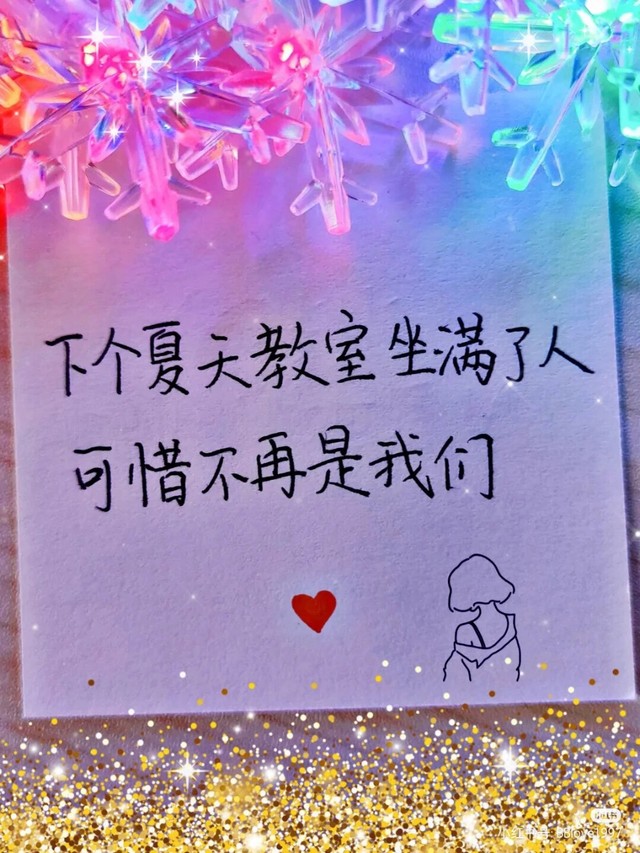 下个夏天教室坐满了人
可惜不再是我们
小红书